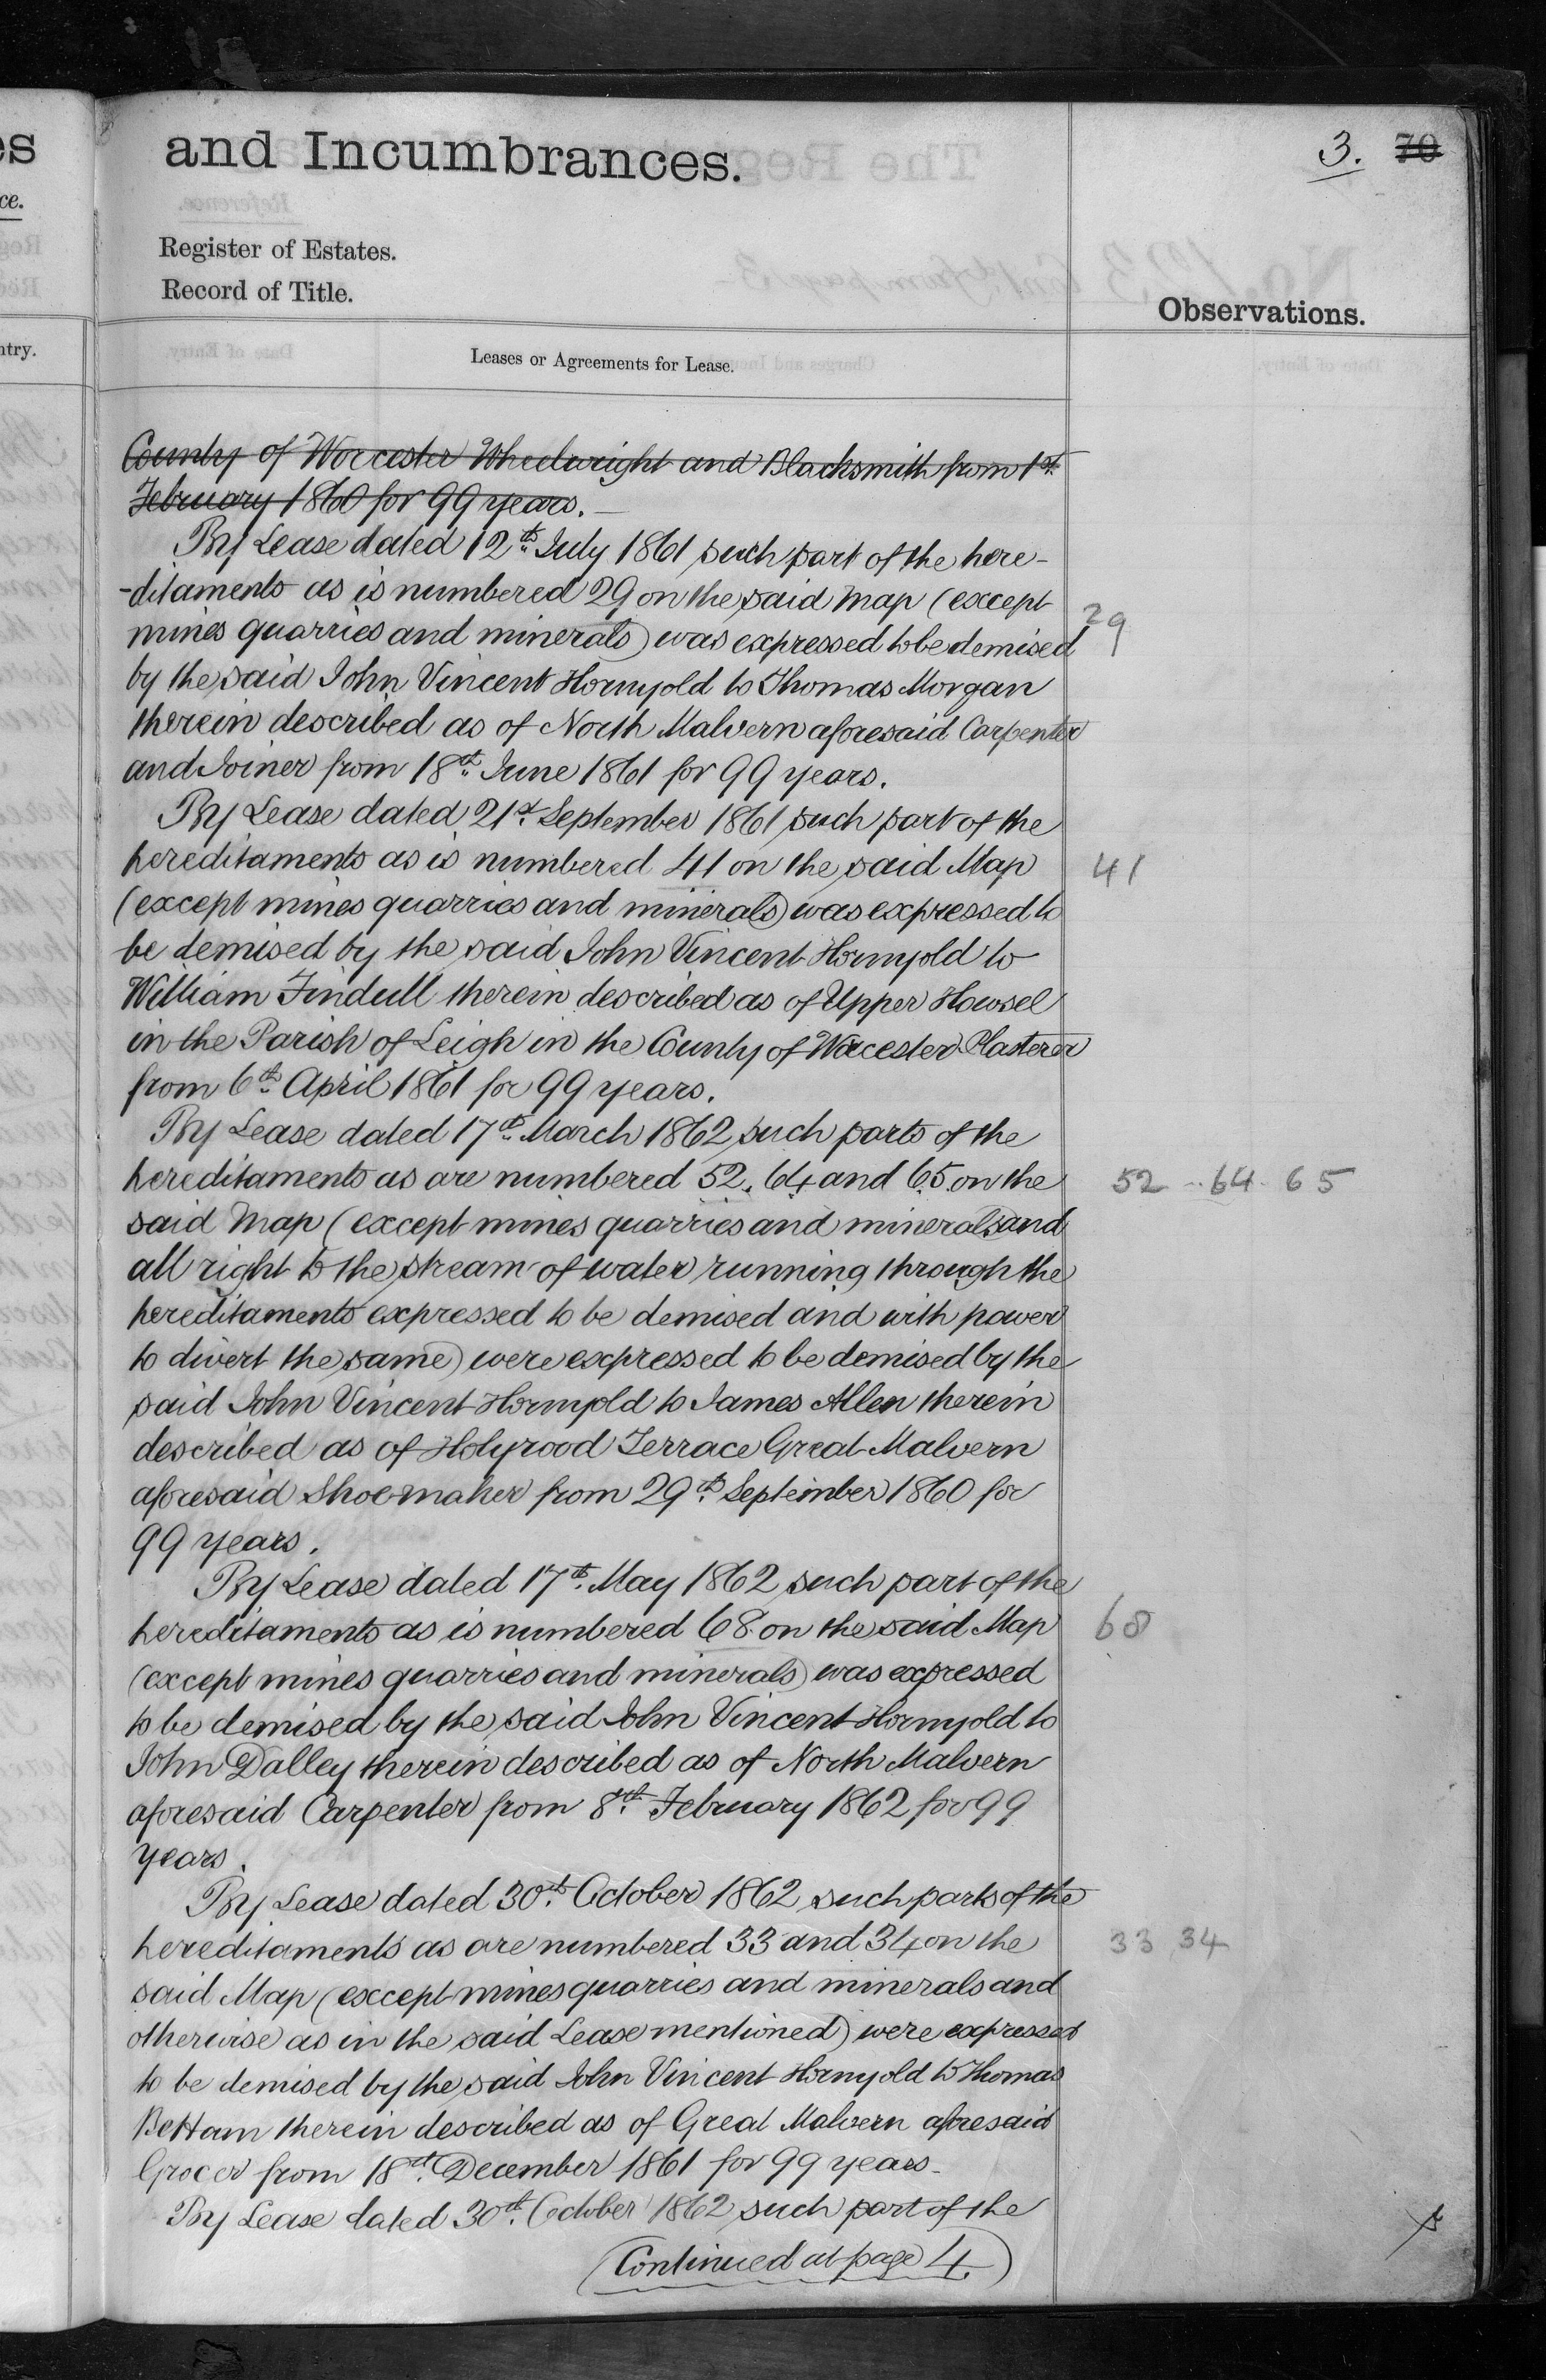 and Incumbrances.
3. 70
Register of Estates.
Record of Title.
Observations.
Leases or Agreements for Lease.
County of Worcester Wheelwright and Blacksmith from 1st
February 1860 for 99 years.
By Lease dated 12th July 1861 such part of the here-
-ditaments as is numbered 29 on the said Map (except
29
mines quarries and minerals) was expressed to be demised
by the said John Vincent Hornyold to Thomas Morgan
therein described as of North Malvern aforesaid Carpenter
and Joiner from 18th June 1861 for 99 years.
By Lease dated 21st September 1861 such part of the
hereditaments as is numbered 41 on the said Map
41
(except mines quarries and minerals) was expressed to
be demised by the said John Vincent Hornyold to
William Findull therein described as of Upper Howsel
in the Parish of Leigh in the County of Worcester Plasterer
from 6th April 1861 for 99 years.
By Lease dated 17th March 1862 such parts of the
hereditaments as are numbered 52. 64 and 65 on the
52 .. 64. 65
said Map (except mines quarries and minerals and
all right to the stream of water running through the
hereditaments expressed to be demised and with power
to divert the same) were expressed to be demised by the
said John Vincent Hornyold to James Allen therein
described as of Holyrood Terrace Great Malvern
aforesaid Shoemaker from 29th September 1860 for
99 years.
By Lease dated 17th May 1862 such part of the
hereditaments as is numbered 68 on the said Map
68
(except mines quarries and minerals) was expressed
to be demised by the said John Vincent Hornyold to
John Dalley therein described as of North Malvern
aforesaid Carpenter from 8th February 1862 for 99
years.
By Lease dated 30th October 1862 such parts of the
hereditaments as are numbered 33 and 34 on the
33 34
said Map (except mines quarries and minerals and
otherwise as in the said Lease mentioned) were expressed
to be demised by the said John Vincent Hornyold to Thomas
Bettam therein described as of Great Malvern aforesaid
Grocer from 18th December 1861 for 99 years.
By Lease dated 30th October 1862 such part of the
(Continued at page 4.)